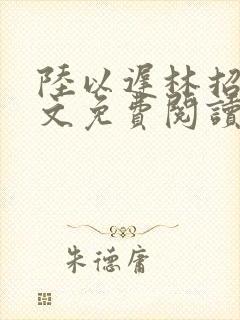 陸以遲林招
文免費閱讀
朱德庸